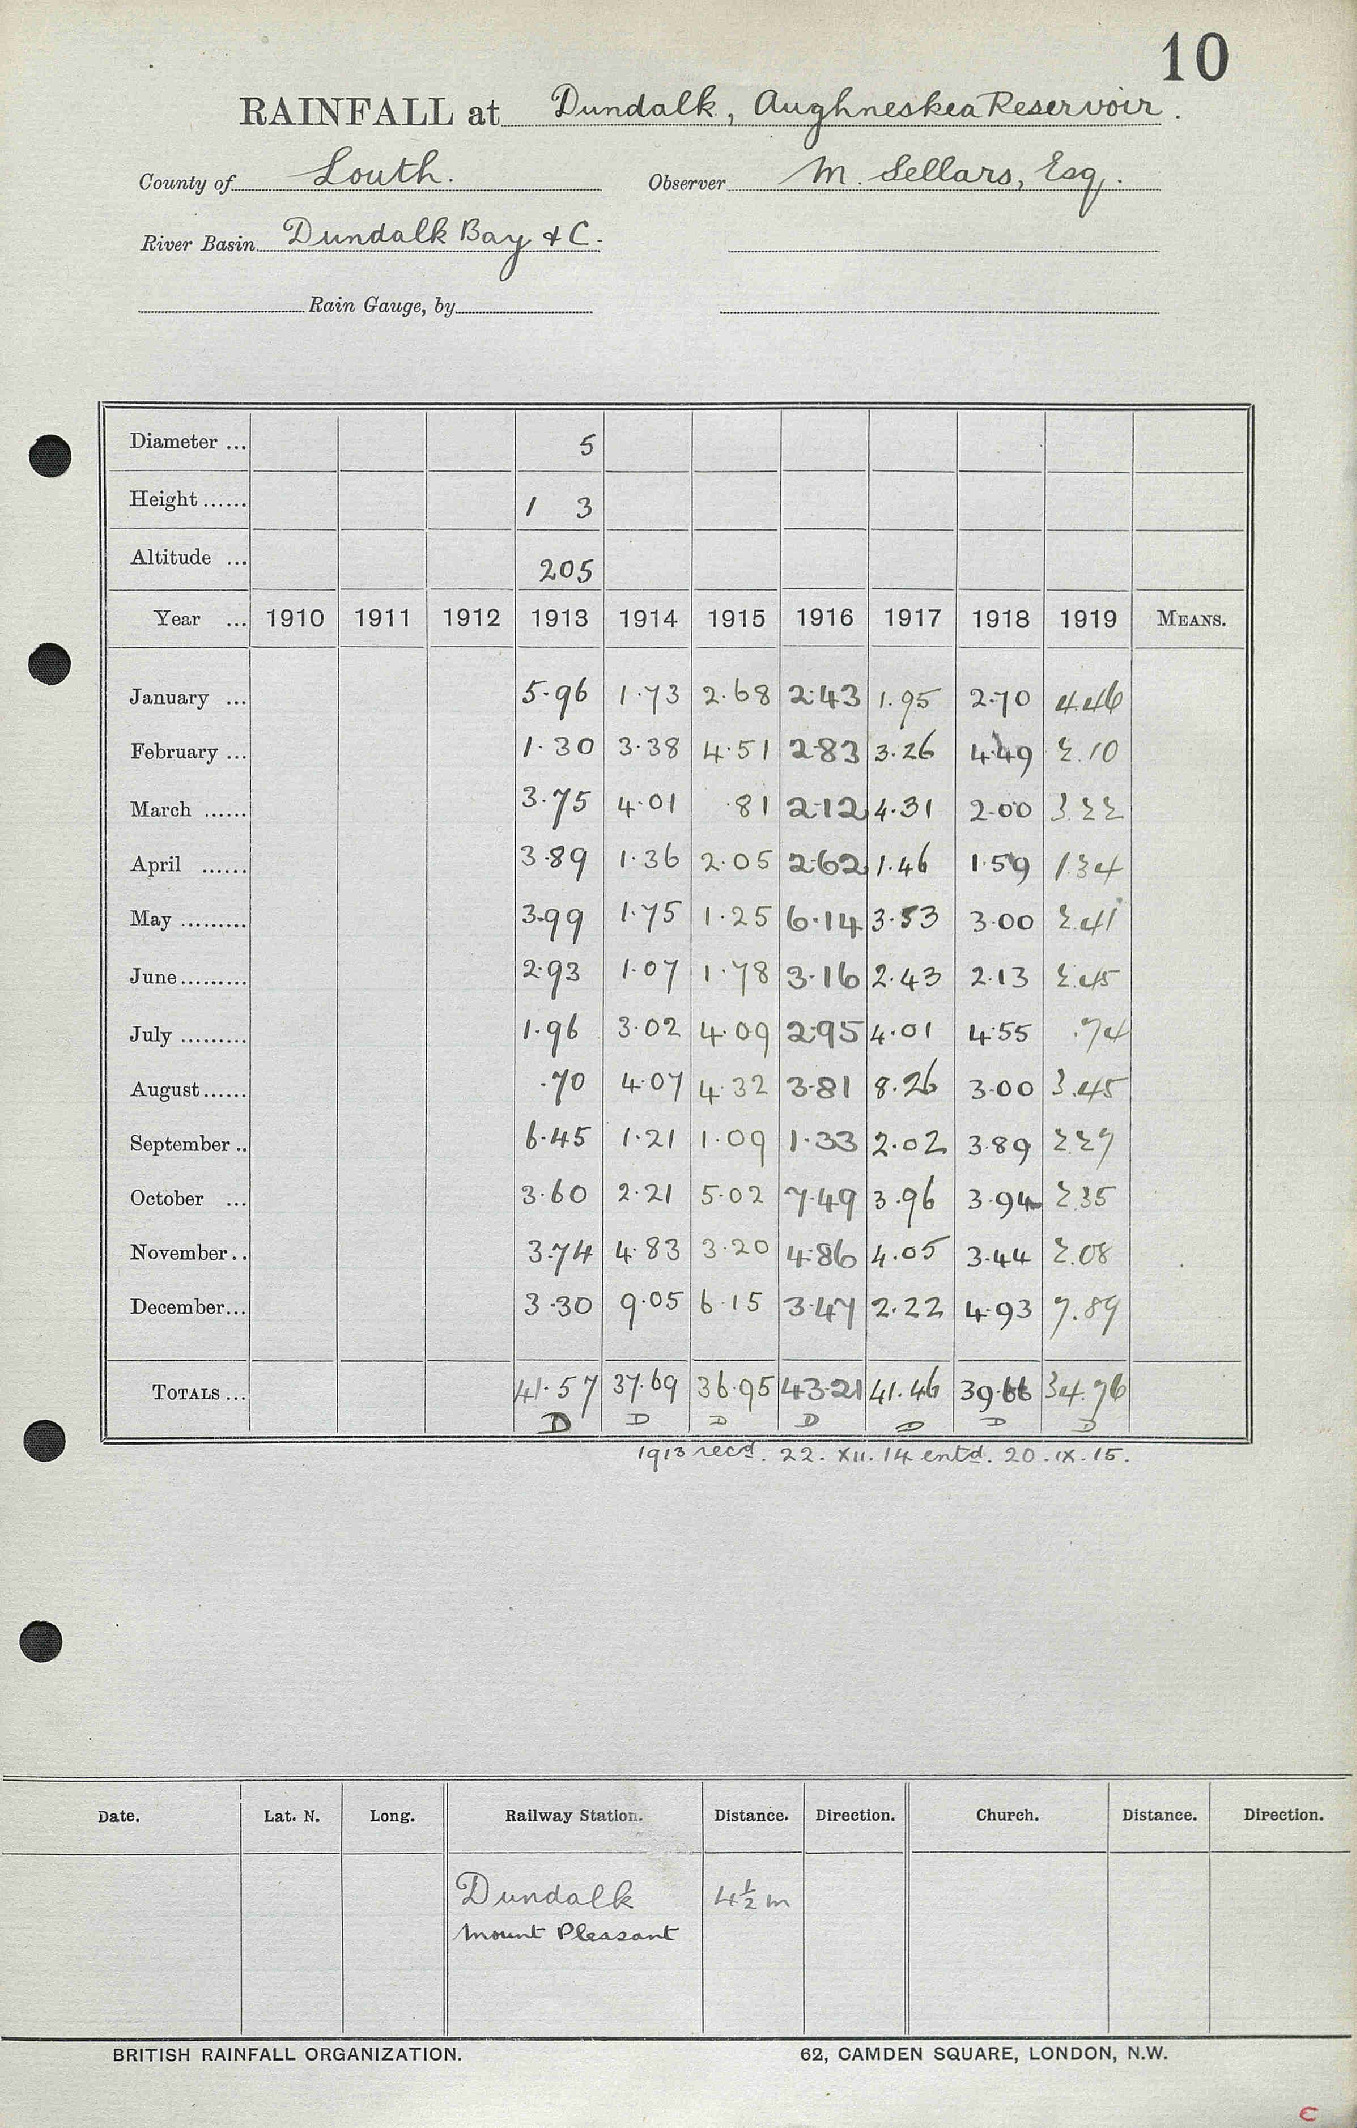 10
RAINFALL at Dundalk, Aughneskea Reservoir.
County of Louth. Observer M. Sellars, Esq.
River Basin Dundalk Bay & C.
Rain Gauge, by
Diameter ... 5
Height ...... 1 3
Altitude ... 205
Year ... 1910 1911 1912 1913 1914 1915 1916 1917 1918 1919 MEANS.
January ... 5.96 1.73 2.68 2.43 1.95 2.70 4.46
February ... 1.30 3.38 4.51 2.83 3.26 4.49 2.10
March ...... 3.75 4.01 .81 2.12 4.31 2.00 3.22
April ...... 3.89 1.36 2.05 2.62 1.46 1.59 1.34
May ......... 3.99 1.75 1.25 6.14 3.53 3.00 2.41
June......... 2.93 1.07 1.78 3.16 2.43 2.13 2.45
July ......... 1.96 3.02 4.09 2.95 4.01 4.55 .74
August...... .70 4.07 4.32 3.81 8.26 3.00 3.45
September .. 6.45 1.21 1.09 1.33 2.02 3.89 2.27
October ... 3.60 2.21 5.02 7.49 3.96 3.94 2.35
November.. 3.74 4.83 3.20 4.86 4.05 3.44 2.08
December... 3.30 9.05 6.15 3.47 2.22 4.93 7.89
TOTALS ... 41.57 37.69 36.95 43.21 41.46 39.66 34.76
D D D D D D D
1913 recd. 22. XII. 14 entd. 20. IX. 15.
Date. Lat. N. Long. Railway Station. Distance. Direction. Church. Distance. Direction.
Dundalk 4½ m
Mount Pleasant
BRITISH RAINFALL ORGANIZATION. 62, CAMDEN SQUARE, LONDON, N.W.
C